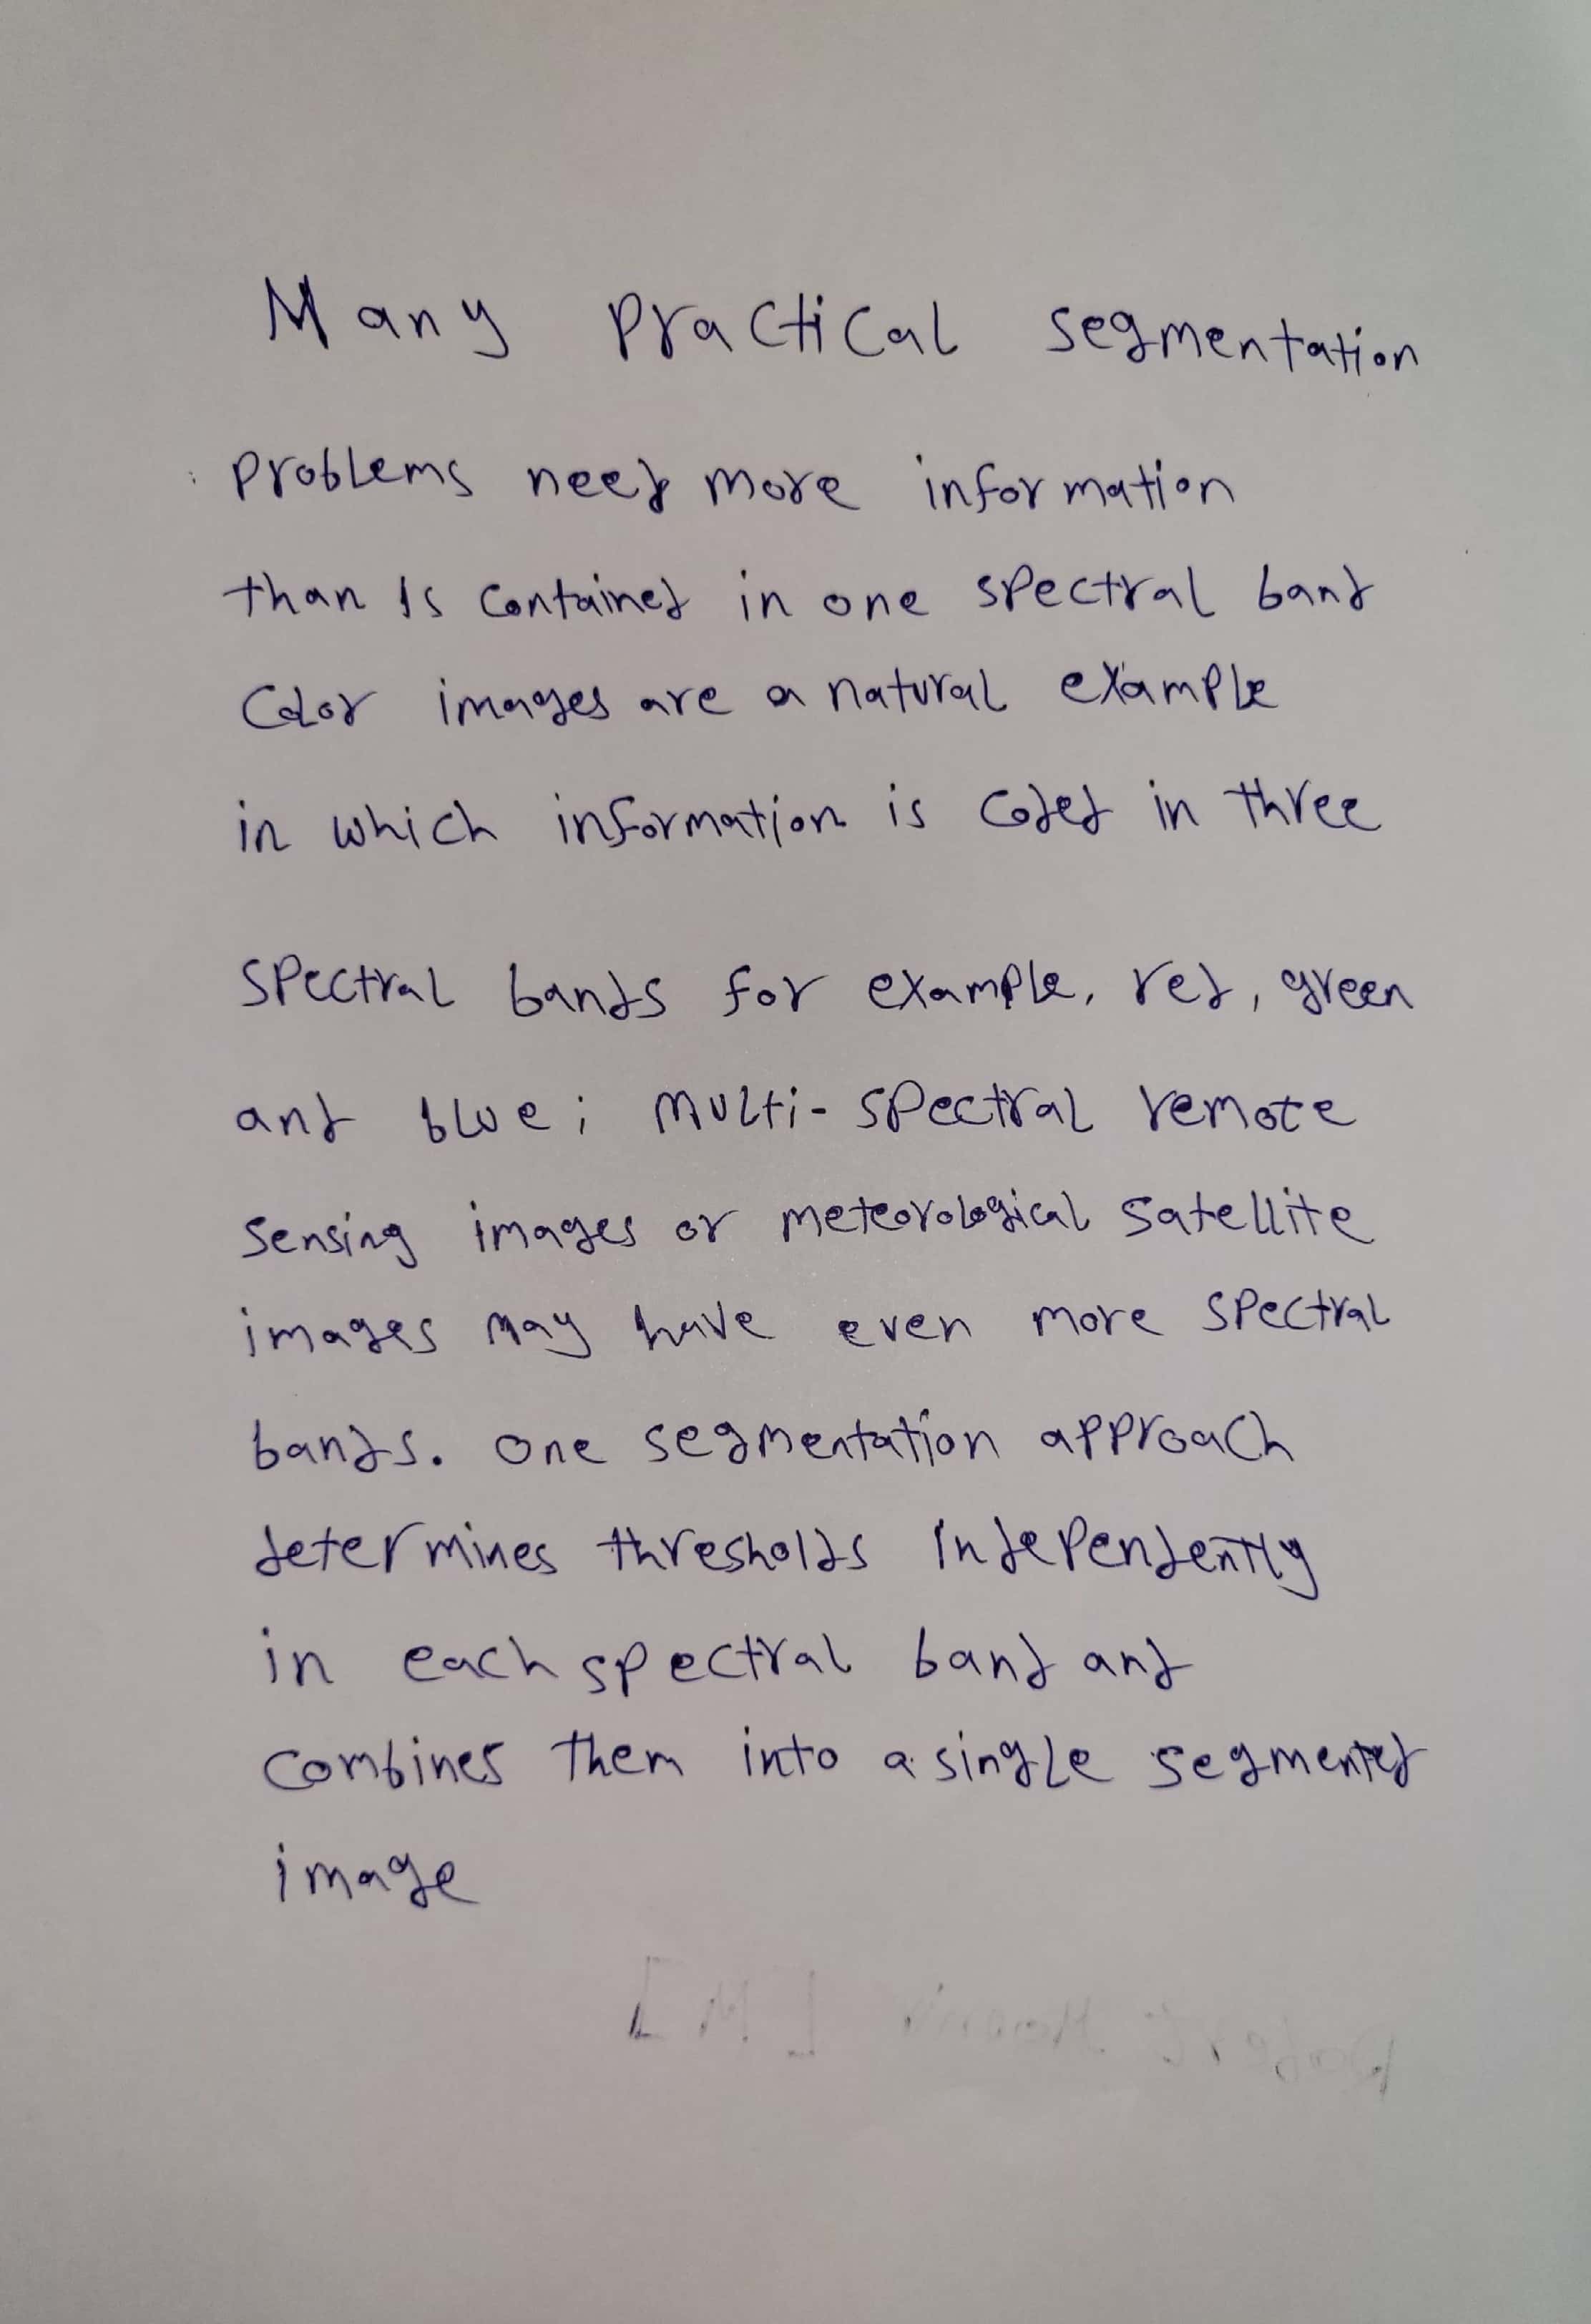 Many practical segmentation
problems need more information
than is contained in one spectral band
Color images are a natural example
in which information is coded in three
spectral bands for example, red, green
and blue; multi-spectral remote
sensing images or meteorological satellite
images may have even more spectral
bands. one segmentation approach
determines thresholds independently
in each spectral band and
combines them into a single segmented
image